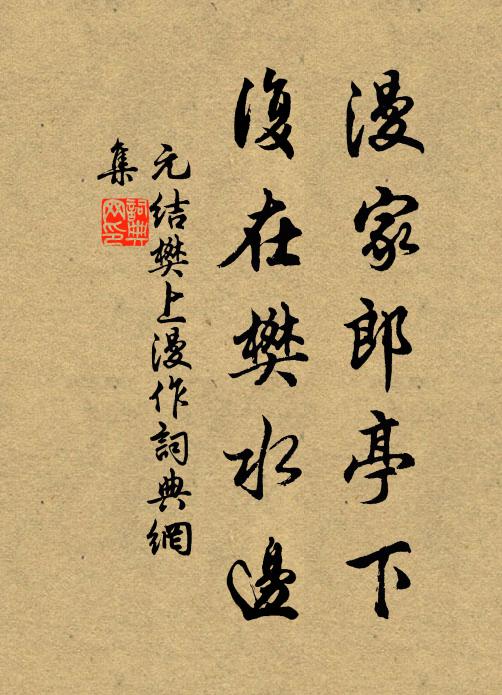 漫家郎亭下
復在樊水邊
元结樊上漫作詞典網
集
詞典
网印